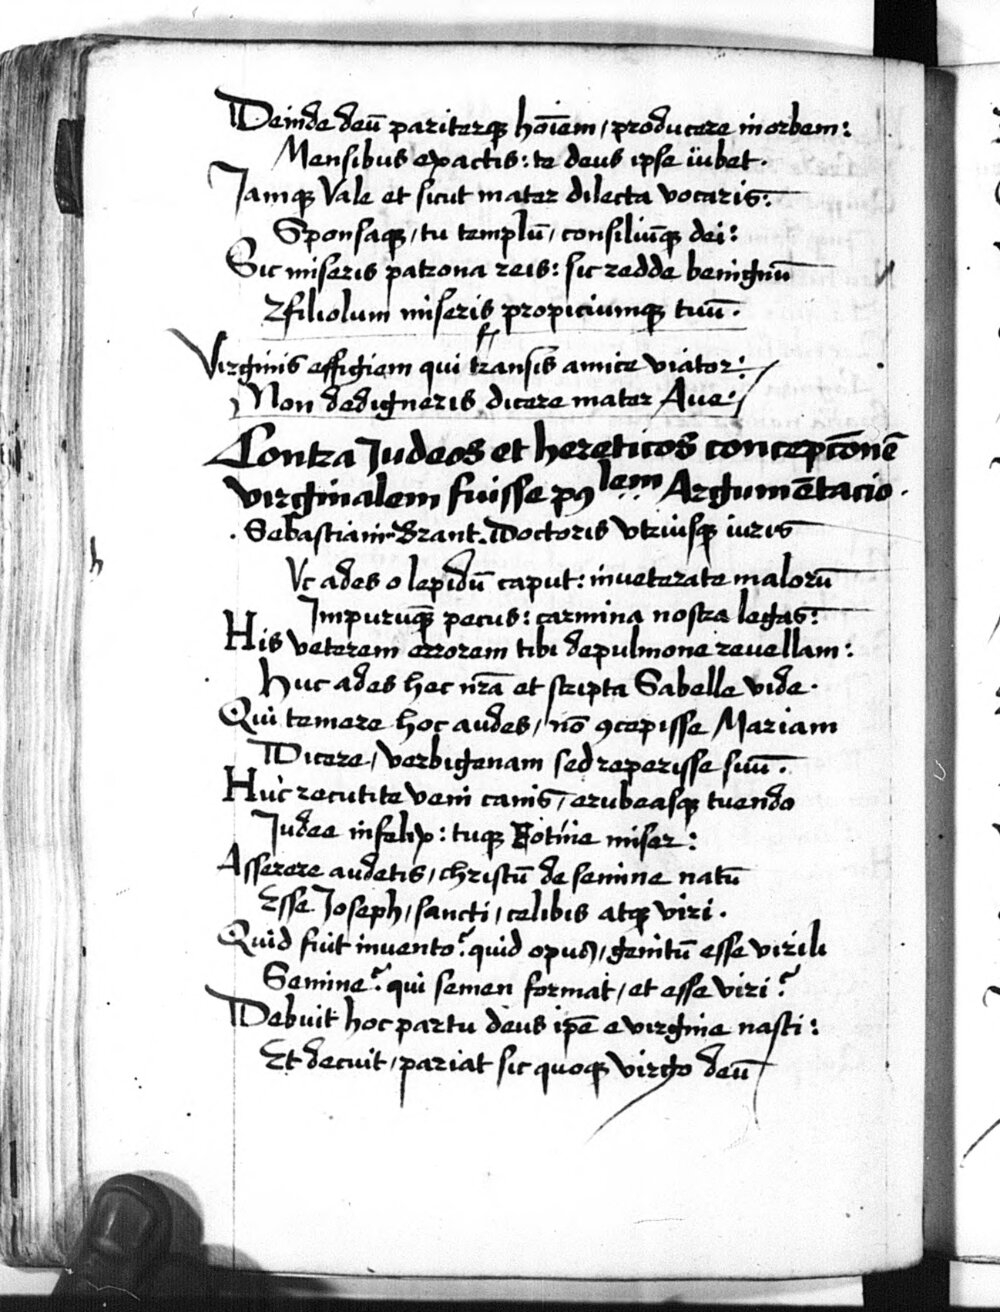 Deinde deū pariterqꝫ hoīem / producere in orbem:
Mensibus exactis: te deus ipse iubet.
Jamqꝫ Vale et sicut mater dilecta vocaris:
Sponsaqꝫ / tu templū / consiliūqꝫ dei:
Sic miseris patrona reis: sic redde benignū
Filiolum miseris propiciumqꝫ tuū.
Virginis effigiem qui transis amice viator:
Non dedigneris dicere mater Aue:
Contra Judeos et hereticos concepcionē
virginalem fuisse poꝰlem Argumētacio.
. Sebastiani Brant. Doctoris vtriusqꝫ iuris
Vc ades o lepidū caput: inueterate malorū
Impuruqꝫ pecus: carmina nostra legas:
His veterem errorem tibi de pulmone reuellam:
Huc ades hec nr̄a et scripta Sabelle vide.
Qui temere hoc audes / nō ꝯcepisse Mariam
Dicere / verbigenam sed reperisse suū.
Huc recutite veni canis / erubeasqꝫ tuendo
Judee infelix: tuqꝫ Fotine miser:
Asserere audetis / christū de semine natū
Esse Joseph / sancti / celibis atqꝫ viri.
Quid fuit inuento? quid opus / genitū esse virili
Semine? qui semen format / et esse viri?
Debuit hoc partu deus ip̄e e virgine nasci:
Et decuit / pariat sic quoqꝫ virgo deū
h